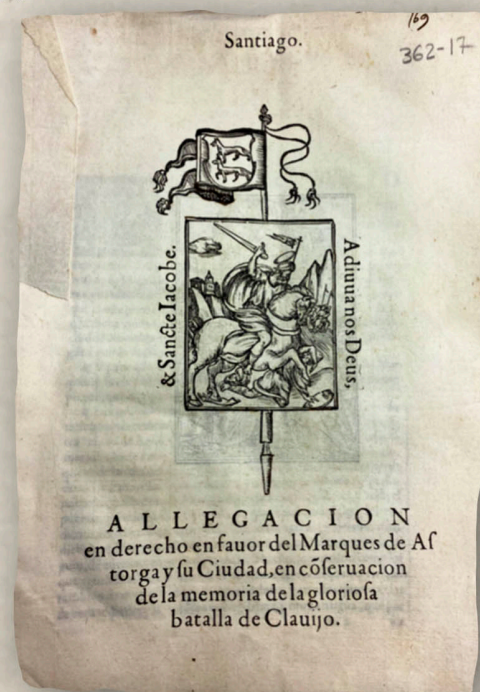 169
362-17
Santiago.
Adiuuanos Deus,
& Sancte Iacobe.
ALLEGACION
en derecho en fauor del Marques de Aſ
torga y ſu Ciudad, en cõſeruacion
de la memoria de la glorioſa
batalla de Clauijo.